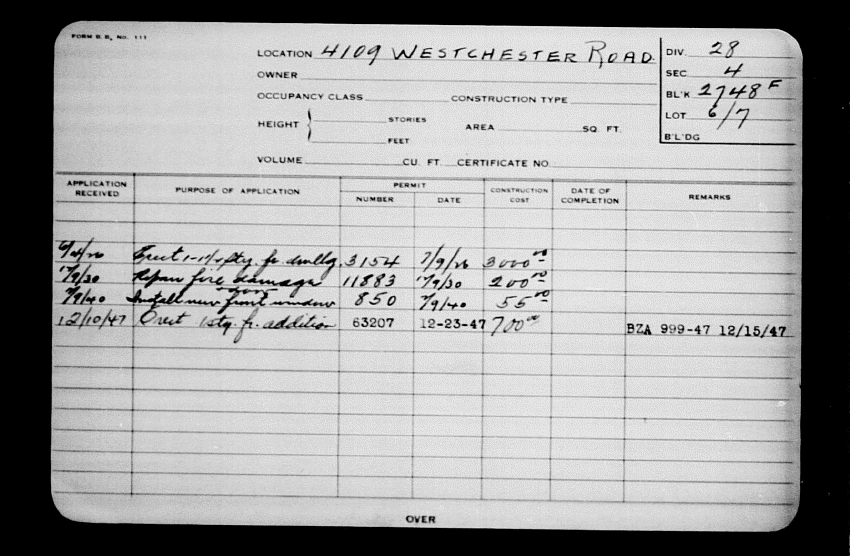 FORM B. B. NO. 111
LOCATION 4109 WESTCHESTER ROAD
DIV. 28
OWNER
SEC 4
OCCUPANCY CLASS CONSTRUCTION TYPE
BL'K 2748 F
HEIGHT { STORIES AREA SQ. FT.
LOT 6/7
FEET
B'L'DG
VOLUME CU. FT. CERTIFICATE NO.
APPLICATION RECEIVED PURPOSE OF APPLICATION PERMIT NUMBER DATE CONSTRUCTION COST DATE OF COMPLETION REMARKS
Erect sty. fr. dwellg. 3154 7/9/26 3000 00
Repair fire damage 11883 /9/30 200 00
7/9/40 Install new front window 850 7/9/40 55 00
12/10/47 Erect 1 sty. fr. addition 63207 12-23-47 700 00 BZA 999-47 12/15/47
OVER